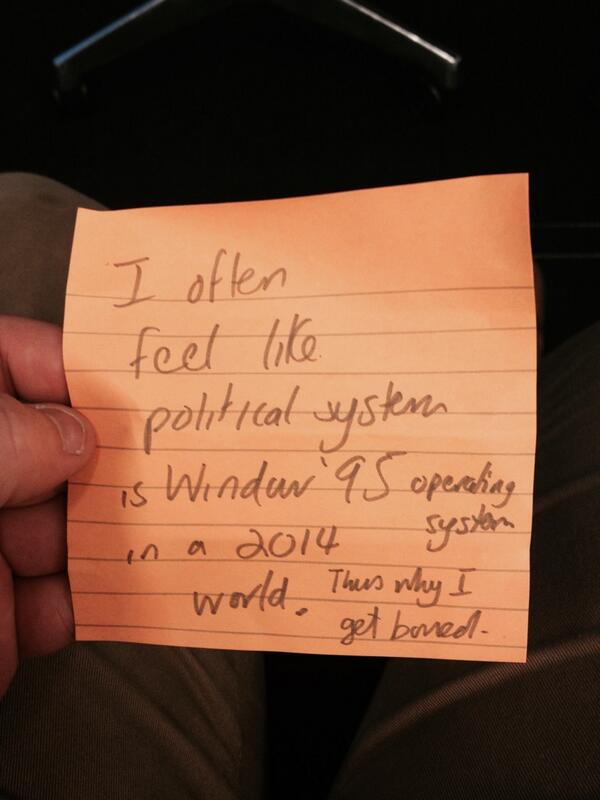 I often
feel like
political system
is Window '95 operating
system
in a 2014
world. Thus why I
get bored.